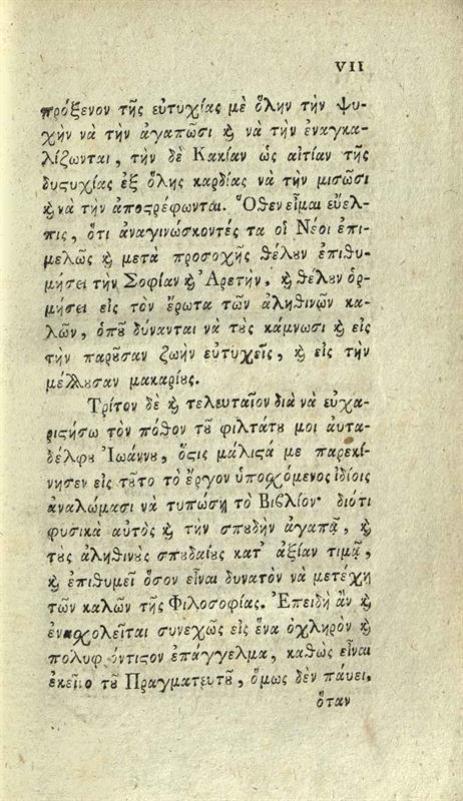 VII
πρόξενον τῆς εὐτυχίας μὲ ὅλην τὴν ψυ-
χὴν νὰ τὴν ἀγαπῶσι ϗ νὰ τὴν ἐναγκα-
λίζωνται, τὴν δὲ Κακίαν ὡς αἰτίαν τῆς
δυςυχίας ἐξ ὅλης καρδίας νὰ τὴν μισῶσι
ϗ νὰ τὴν ἀποςρέφωνται. Ὅθεν εἶμαι εὔελ-
πις, ὅτι ἀναγινώσκοντές τα οἱ Νέοι ἐπι-
μελῶς ϗ μετὰ προσοχῆς θέλουν ἐπιθυ-
μήσει τὴν Σοφίαν ϗ Ἀρετὴν, ϗ θέλουν ὁρ-
μήσει εἰς τὸν ἔρωτα τῶν ἀληθινῶν κα-
λῶν, ὁποῦ δύνανται νὰ τοὺς κάμνωσι ϗ εἰς
τὴν παροῦσαν ζωὴν εὐτυχεῖς, ϗ εἰς τὴν
μέλλουσαν μακαρίους.
Τρίτον δὲ ϗ τελευταῖον διὰ νὰ εὐχα-
ριςήσω τὸν πόθον τοῦ φιλτάτου μοι αὐτα-
δέλφου Ἰωάννου, ὅςις μάλιςά με παρεκί-
νησεν εἰς τοῦτο τὸ ἔργον ὑποσχόμενος ἰδίοις
ἀναλώμασι νὰ τυπώσῃ τὸ Βιβλίον· διότι
φυσικὰ αὐτὸς ϗ τὴν σπουδὴν ἀγαπᾷ, ϗ
τοὺς ἀληθινοὺς σπουδαίους κατ' ἀξίαν τιμᾷ,
ϗ ἐπιθυμεῖ ὅσον εἶναι δυνατὸν νὰ μετέχῃ
τῶν καλῶν τῆς Φιλοσοφίας. Ἐπειδὴ ἂν ϗ
ἐνασχολεῖται συνεχῶς εἰς ἕνα ὀχληρὸν ϗ
πολυφρόντιςον ἐπάγγελμα, καθὼς εἶναι
ἐκεῖνο τοῦ Πραγματευτοῦ, ὅμως δὲν παύει,
ὅταν